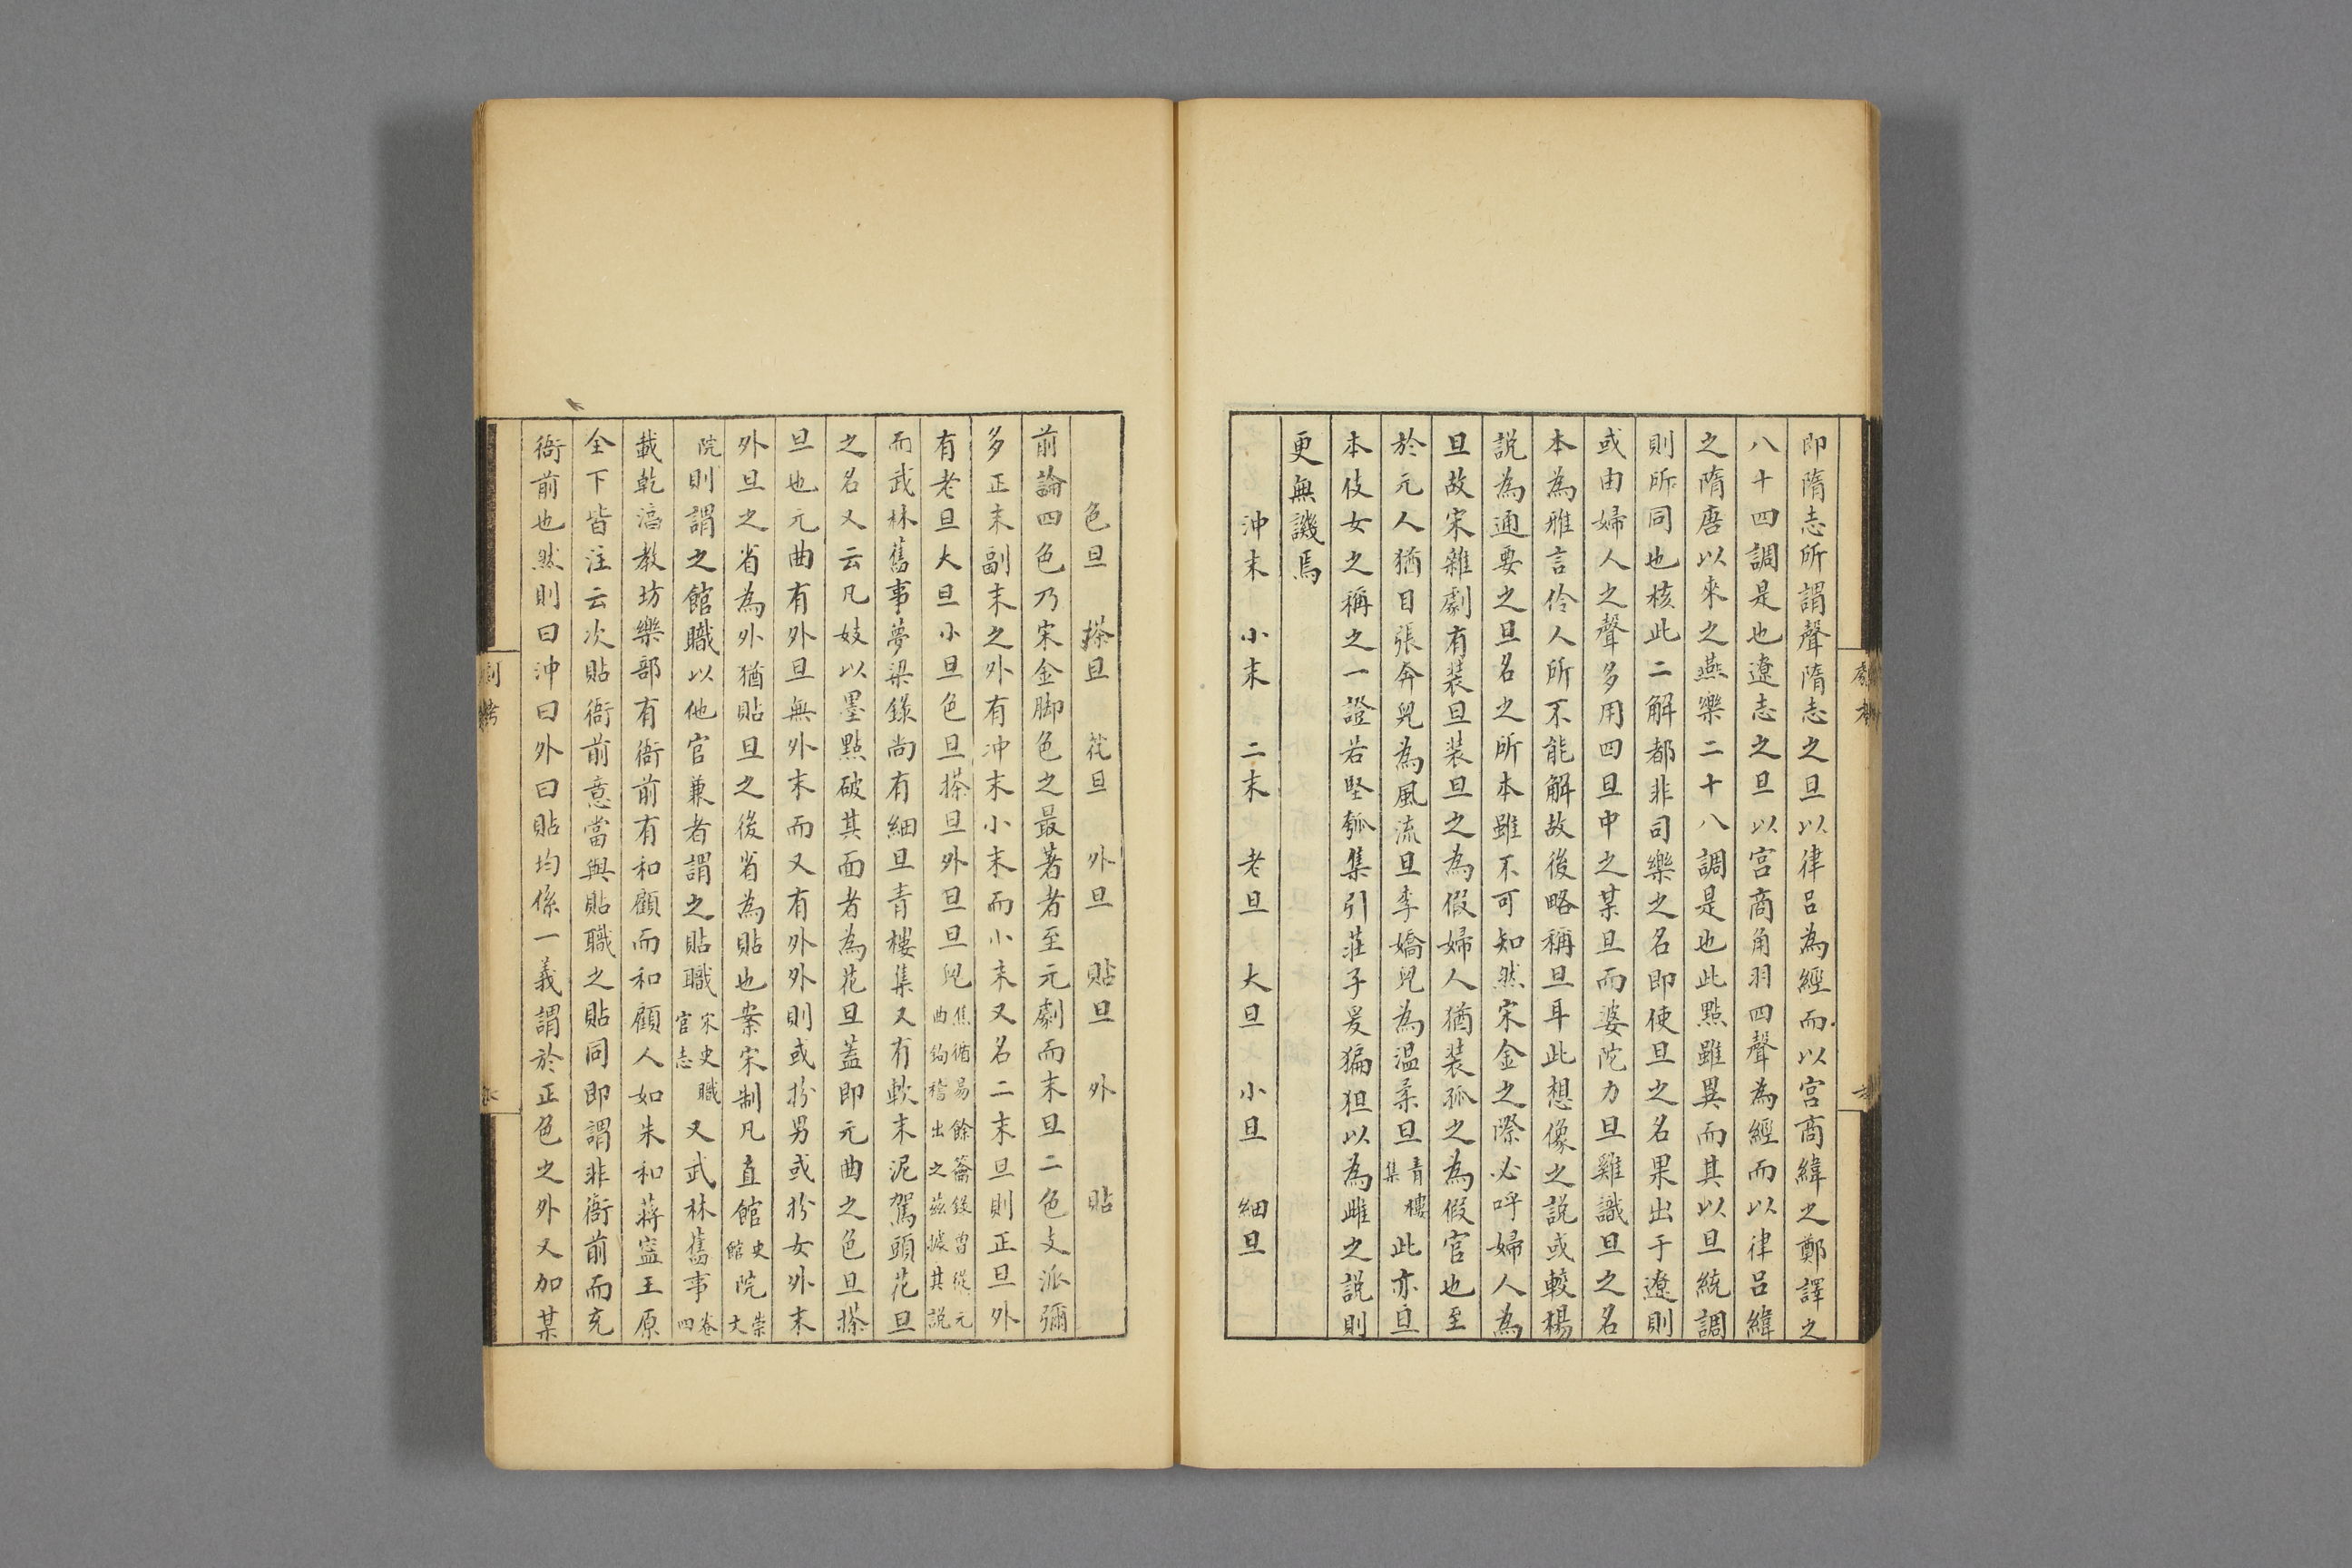 即隋志所謂聲隋志之旦以律呂為經而以宮商緯之鄭譯之
八十四調是也遼志之旦以宮商角羽四聲為經而以律呂緯
之隋唐以來之燕樂二十八調是也此點雖異而其以旦統調
則所同也核此二解都非司樂之名即使旦之名果出于遼則
或由婦人之聲多用四旦中之某旦而婆陀力旦雞識旦之名
本為雅言伶人所不能解故後略稱旦耳此想像之說或較楊
說為通要之旦名之所本雖不可知然宋金之際必呼婦人為
旦故宋雜劇有裝旦裝旦之為假婦人猶裝孤之為假官也至
於元人猶目張奔兒為風流旦李嬌兒為溫柔旦青樓集此亦旦
本伎女之稱之一證若堅瓠集引莊子爰猵狙以為雌之說則
更無譏焉
沖末 小末 二末 老旦 大旦 小旦 細旦
色旦 搽旦 花旦 外旦 貼旦 外 貼
前論四色乃宋金腳色之最著者至元劇而末旦二色支派彌
多正末副末之外有沖末小末而小末又名二末旦則正旦外
有老旦大旦小旦色旦搽旦外旦旦兒焦循易餘籥錄曾從元曲鉤稽出之茲據其說
而武林舊事夢粱錄尚有細旦青樓集又有軟末泥駕頭花旦
之名又云凡妓以墨點破其面者為花旦蓋即元曲之色旦搽
旦也元曲有外旦無外末而又有外外則或扮男或扮女外末
外旦之省為外猶貼旦之後省為貼也案宋制凡直館史館院崇文
院則謂之館職以他官兼者謂之貼職宋史職官志又武林舊事卷四
載乾淳教坊樂部有衙前有和顧而和顧人如朱和蔣寧王原
全下皆注云次貼衙前意當與貼職之貼同即謂非衙前而充
衙前也然則曰沖曰外曰貼均係一義謂於正色之外又加某